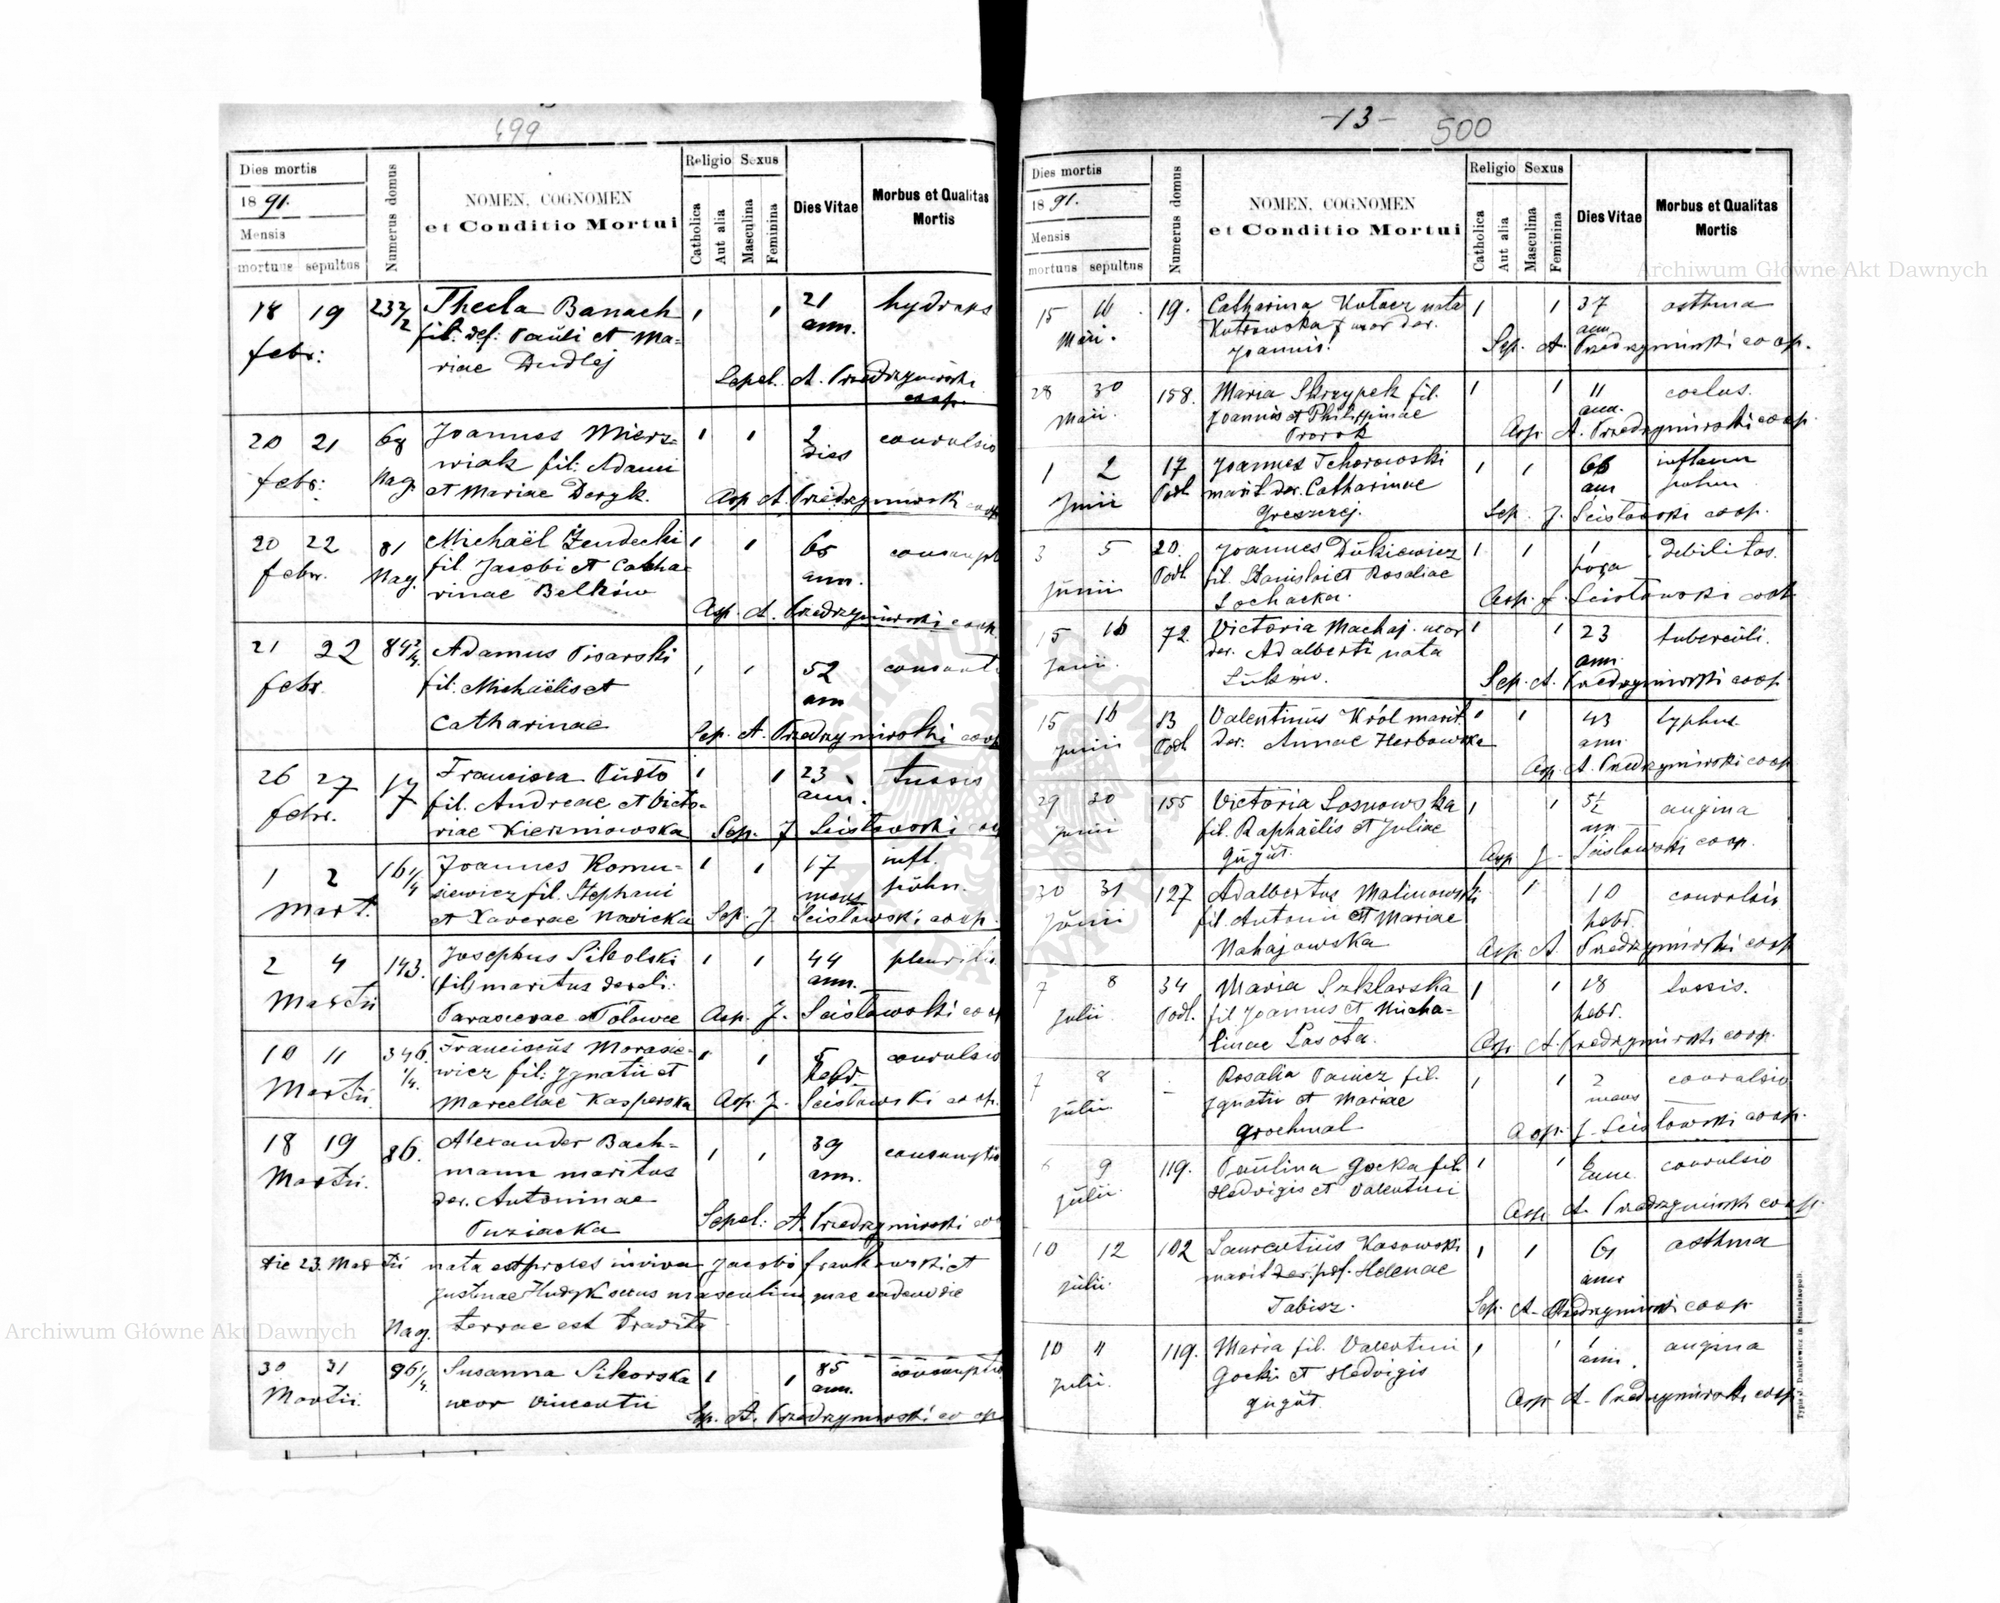 499
Dies mortis
1891.
Mensis
mortuus sepultus
Numerus domus
NOMEN, COGNOMEN
et Conditio Mortui
Religio Sexus
Catholica
Aut alia
Masculina
Feminina
Dies Vitae
Morbus et Qualitas
Mortis
18 19 febr:
Thecla Banach
fil. def. Pauli et Ma=
riae Dudlej
1 1 21 ann. hydrops
Sepel. A. Przedrzymirski coop.
20 21 febr: 68 Nag.
Joannes Mierz=
wiak fil: Adami
et Mariae Deryk.
1 1 2 dies convulsio
Asp A. Przedrzymirski coop
20 22 febr. 81 Nag.
Michaël Zendecki
fil Jacobi et Catha
rinae Belków
1 1 65 ann.
Asp. A. Przedrzymirski coop.
21 22 febr.
Adamus Pisarski
fil. Michaëlis et
Catharinae
1 1 52 ann
Sep. A. Przedrzymirski coop
26 27 febr. 17
Francisca Pudło
fil. Andreae et Victo-
riae Kiezniowska
1 1 23 ann. tussis
Sep. J Scisłowski
1 2 Mart. 16 1/4
Joannes Komu-
siewicz fil. Stephani
et Xaverae Nowicka
1 1 17 mens infl.
Sep. J. Scisłowski coop.
2 4 Martii 143.
Josephus Sikolski
(fil) maritus
1 1 44 ann.
Asp. J. Scisłowski
10 11 Martii. 346. 1/4.
Franciscus Morasie-
wicz fil: Ignatii et
Marcellae Kasperska
1 1 5 hebd. convulsio
Asp. J. Scisłowski coop.
18 19 Martii. 86.
Alexander Bach=
mann maritus
der. Antoninae
Puziacka
1 1 39 ann. consumptio
Sepel: A. Przedrzymirski
Die 23. Martii nata est proles inviva Jacobi Frankowski et
Justinae Hudyk sexus masculini, quae eadem die
Nag. terrae est tradita
30 31 Martii. 96 1/4.
Susanna Sikorska
uxor Vincentii
1 1 85 ann. consumptio
Sep. A. Przedrzymirski coop
-13- 500
Dies mortis
1891.
Mensis
mortuus sepultus
Numerus domus
NOMEN, COGNOMEN
et Conditio Mortui
Religio Sexus
Catholica
Aut alia
Masculina
Feminina
Dies Vitae
Morbus et Qualitas
Mortis
15 16 Maii. 19.
Catharina Kołacz nata
Kutrowska uxor der.
Joannis.
1 1 37 ann asthma
Sep. A. Przedrzymirski coop.
28 30 Maii. 158.
Maria Skrzypek fil.
Joannis et Philippinae
Prorok
1 1 11 ann.
Asp. A. Przedrzymirski coop.
1 2 Junii 17 Podl
Joannes Tchorowski
marit. der. Catharinae
1 1 66 ann inflamm
Sep. J. Scisłowski coop.
3 5 Junii 20. Podl
Joannes Dutkiewicz
fil. Stanislai et Rosaliae
Sochacka.
1 1 1 hora debilitas.
Asp. J. Scisłowski coop
15 16 Junii. 72.
Victoria Machaj. uxor
der. Adalberti nata
1 1 23 ann. tuberculi.
Sep. A. Przedrzymirski coop
15 16 Junii 13 Podl
Valentinus Król marit.
der. Annae Herbowska
1 1 43 ann. typhus
Asp. A. Przedrzymirski coop
29 30 Junii 155
Victoria Sosnowska
fil. Raphaëlis et Juliae
Gugut.
1 1 5 1/2 ann angina
Asp J. Scisłowski coop.
30 31 Junii 127
Adalbertus Malinowski
fil. Antonii et Mariae
Nahajowska
1 1 10 hebd. convulsio
Asp. A. Przedrzymirski coop
7 8 Julii 34 Podl.
Maria Szklarska
fil Joannis et Micha-
linae Lasota.
1 1 18 hebd. tussis.
Asp. A. Przedrzymirski coop.
7 8 Julii. -
Rosalia Panicz fil.
Ignatii et Mariae
Grochmal
1 1 2 mens convulsio
Asp. J. Scisłowski coop.
9 Julii. 119.
Paulina Gocka fil.
Hedvigis et Valentini
1 1 convulsio
Asp. A. Przedrzymirski coop.
10 12 Julii. 102
Laurentius Kosowski
marit der. Helenae
Tabisz.
1 1 61 ann asthma
Sep. A. Przedrzymirski coop.
10 11 Julii. 119.
Maria fil. Valentini
Gocki et Hedvigis
Gugut.
1 1 1 ann. angina
Asp. A. Przedrzymirski coop
Typis J. Dankiewicz in Stanislaopoli.
Archiwum Główne Akt Dawnych
Archiwum Główne Akt Dawnych